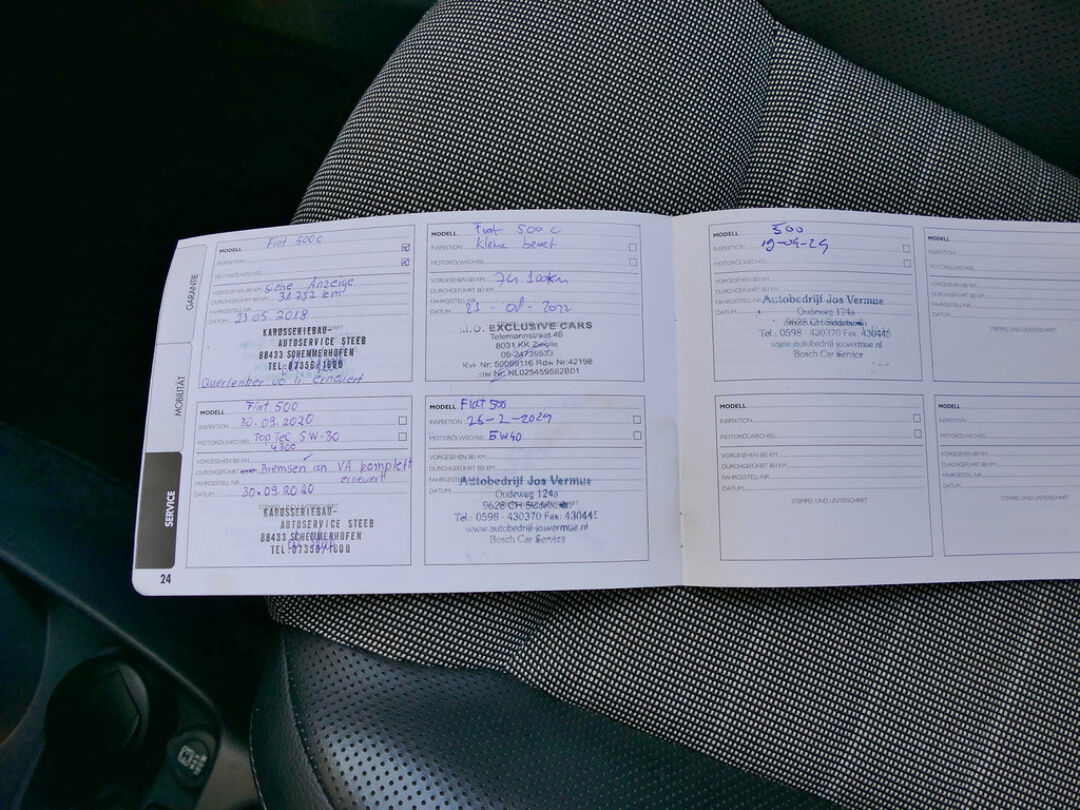 GARANTIE
MOBILITÄT
SERVICE
24
MODELL Fiat 500c
INSPEKTION
MOTORÖLWECHSEL
VORGESEHEN BEI KM siehe Anzeige
DURCHGEFÜHRT BEI KM 31752 km
FAHRGESTELL-NR.
DATUM 23.05.2018
KAROSSERIEBAU-
AUTOSERVICE STEEB
88433 SCHEMMERHOFEN
TEL.:07356/1600
Querlenker vo li erneuert
MODELL Fiat 500
INSPEKTION 30.09.2020
MOTORÖLWECHSEL TopTec 5W-30
VORGESEHEN BEI KM
DURCHGEFÜHRT Bremsen an VA komplett
FAHRGESTELL-NR. erneuert
DATUM 30.09.2020
KAROSSERIEBAU-
AUTOSERVICE STEEB
88433 SCHEMMERHOFEN
TEL.:07356/1600
MODELL Fiat 500 c
INSPEKTION kleine beurt
MOTORÖLWECHSEL
VORGESEHEN BEI KM
DURCHGEFÜHRT BEI KM
FAHRGESTELL-NR.
DATUM
EXCLUSIVE CARS
Telemannstraat 46
8031 KK Zwolle
06-24739533
Kvk Nr: 50099116 Rdw Nr:42198
Btw Nr: NL025459582B01
MODELL Fiat 500
INSPEKTION 26-2-2024
MOTORÖLWECHSEL 5W40
VORGESEHEN BEI KM
DURCHGEFÜHRT BEI KM
FAHRGESTELL-NR.
DATUM
Autobedrijf Jos Vermue
Oudeweg 124a
9628 CH Siddeburen
Tel.: 0598 - 430370 Fax: 430445
www.autobedrijfjosvermue.nl
Bosch Car Service
MODELL 500
INSPEKTION 19-04-24
MOTORÖLWECHSEL
VORGESEHEN BEI KM
DURCHGEFÜHRT BEI KM
FAHRGESTELL-NR.
DATUM
Autobedrijf Jos Vermue
Oudeweg 124a
9628 CH Siddeburen
Tel.: 0598 - 430370 Fax: 430445
www.autobedrijfjosvermue.nl
Bosch Car Service
MODELL
INSPEKTION
MOTORÖLWECHSEL
VORGESEHEN BEI KM
DURCHGEFÜHRT BEI KM
FAHRGESTELL-NR.
DATUM
STEMPEL UND UNTERSCHRIFT
MODELL
INSPEKTION
MOTORÖLWECHSEL
VORGESEHEN BEI KM
DURCHGEFÜHRT BEI KM
FAHRGESTELL-NR.
DATUM
STEMPEL UND UNTERSCHRIFT
MODELL
INSPEKTION
MOTORÖLWECHSEL
VORGESEHEN BEI KM
DURCHGEFÜHRT BEI KM
FAHRGESTELL-NR.
DATUM
STEMPEL UND UNTERSCHRIFT